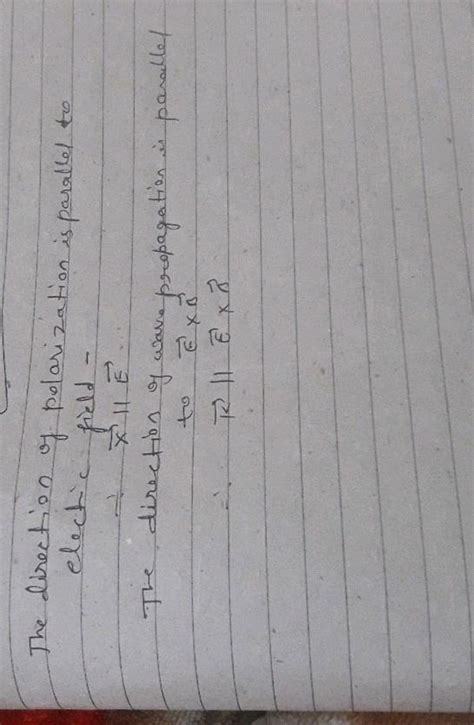 The direction of polarization is parallel to
electric field -
∴ X⃗ || E⃗
The direction of wave propagation is parallel
to E⃗ × B⃗
∴ K⃗ || E⃗ × B⃗